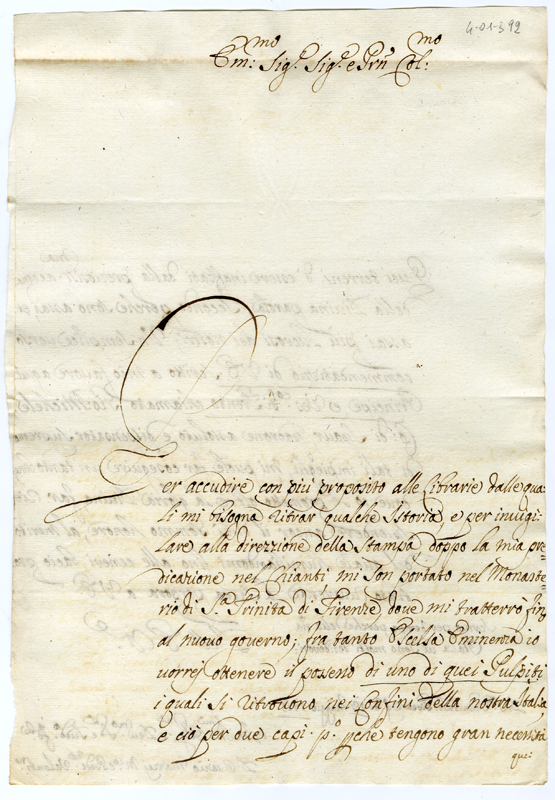 4-01-392
Em:mo Sig.r Sig.r e Prn Col:mo
Per accudire con piú proposito alle Librarie dalle qua=
li mi bisogna ritrar qualche Istoria, e per invigi=
lare alla direzzione della Stampa doppo la mia pre=
dicazione nel Chianti mi son portato nel Monaste=
rio di S.ta Trinita di Firenze dove mi tratterrò fino
al nuovo governo; fra tanto Eminenza io
vorrej ottenere il possesso di uno di quei Pulpiti
i quali si ritrovono nei Confini della nostra Italia
e ciò per due capi. p.o pche tengono gran necessitá
que: